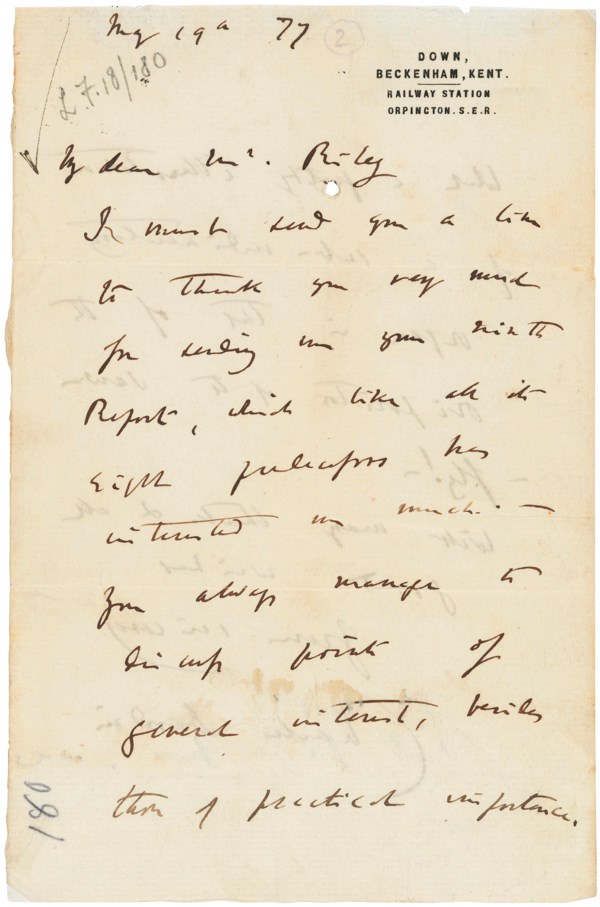 May 19th 77
2
DOWN,
BECKENHAM, KENT.
RAILWAY STATION
ORPINGTON. S.E.R.
L.F.18/180
My dear Mr. Riley
I must send you a line
to thank you very much
for sending me your ninth
Report, which like all its
eight predecessors has
interested me much. —
You always manage to
discuss points of
general interest, besides
those of practical importance.
180